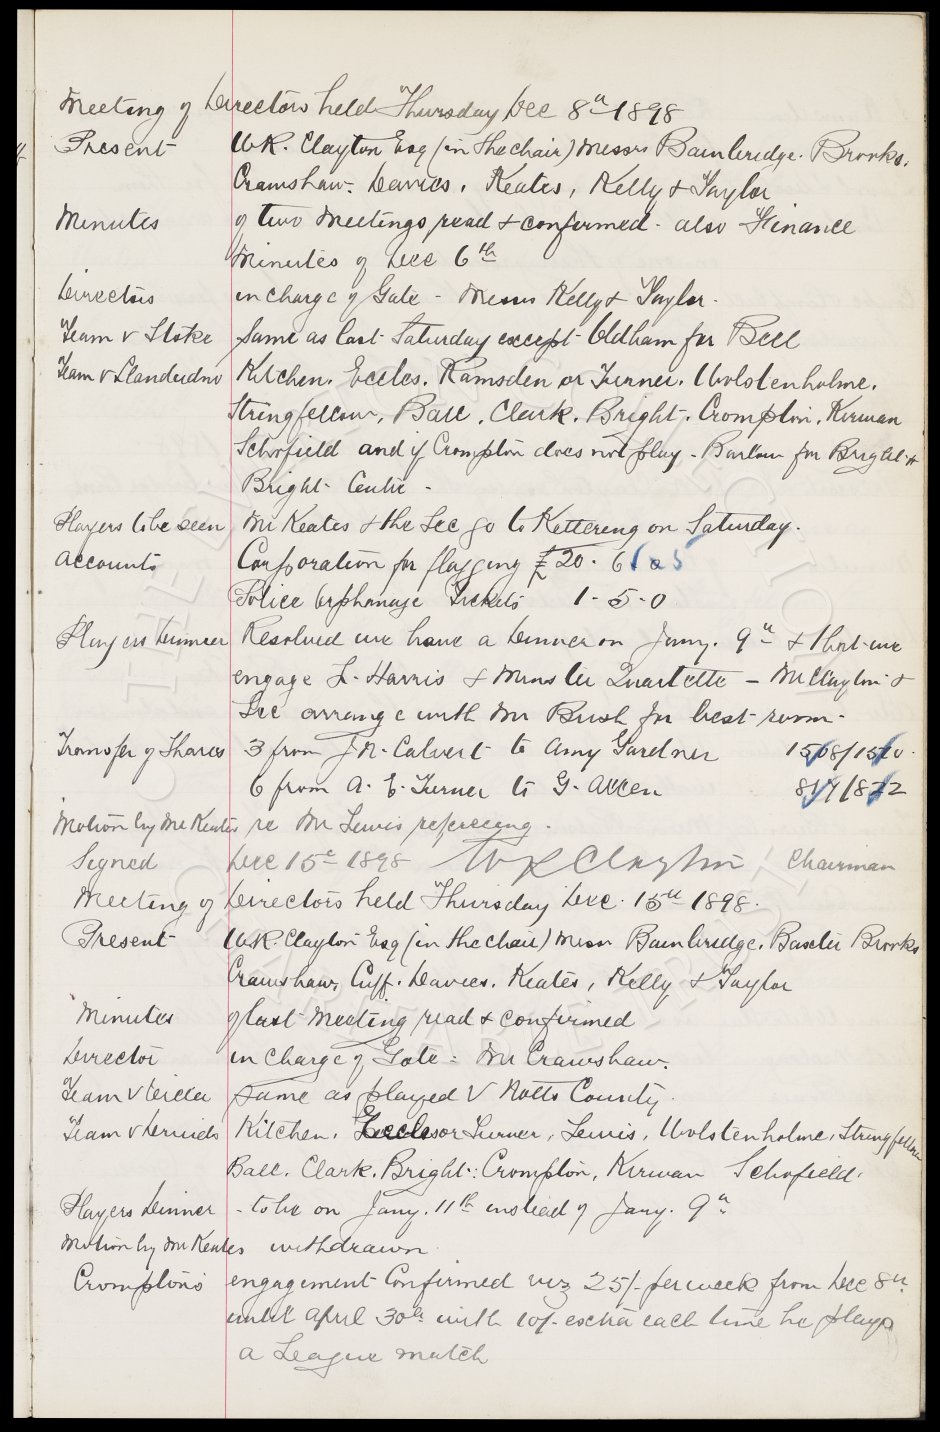 Meeting of Directors held Thursday Dec 8th 1898
Present W.R. Clayton Esq (in the chair) Messrs Bainbridge. Brooks.
Crawshaw. Davies. Keates, Kelly & Taylor
Minutes of two Meetings read & confirmed. also Finance
Minutes of Dec 6th
Directors in charge of Gate - Messrs Kelly & Taylor.
Team v Stoke Same as last Saturday except Oldham for Bell
Team v Llandudno Kitchen. Eccles. Ramsden or Turner. Wolstenholme.
Stringfellow, Ball. Clark. Bright. Crompton. Kirwan
Schofield and if Crompton does not play - Barlow for Bright &
Bright Centre -
Players to be seen Mr Keates & the Sec go to Kettering on Saturday.
Accounts Corporation for flagging £20. 6
Police Orphanage Tickets 1 - 5 - 0
Players Dinner Resolved we have a Dinner on Jany. 9th & that we
engage L. Harris & Minster Quartette - Mr Clayton &
Sec arrange with Mr Bush for best room.
Transfer of Shares 3 from J.N. Calvert to Amy Gardner 1508/1510.
6 from A. E. Turner to G. Allen 817/822
Motion by Mr Keates re Mr Lewis refereeing.
Signed Dec 15th 1898 W R Clayton Chairman
Meeting of Directors held Thursday Dec. 15th 1898.
Present W.R. Clayton Esq (in the chair) Messrs Bainbridge. Baxter Brooks
Crawshaw, Cuff. Davies. Keates, Kelly & Taylor
Minutes of last Meeting read & confirmed
Director in charge of Gate : Mr Crawshaw.
Team v same as played v Notts County.
Team v Kitchen. Eccles or Turner, Lewis. Wolstenholme. Stringfellow
Ball. Clark. Bright. Crompton, Kirwan Schofield.
Players Dinner - to be on Jany. 11th instead of Jany. 9th
Motion by Mr Keates withdrawn
Crompton's engagement Confirmed viz 25/- per week from Dec 8th
until April 30th with 10/- extra each time he plays
a League match